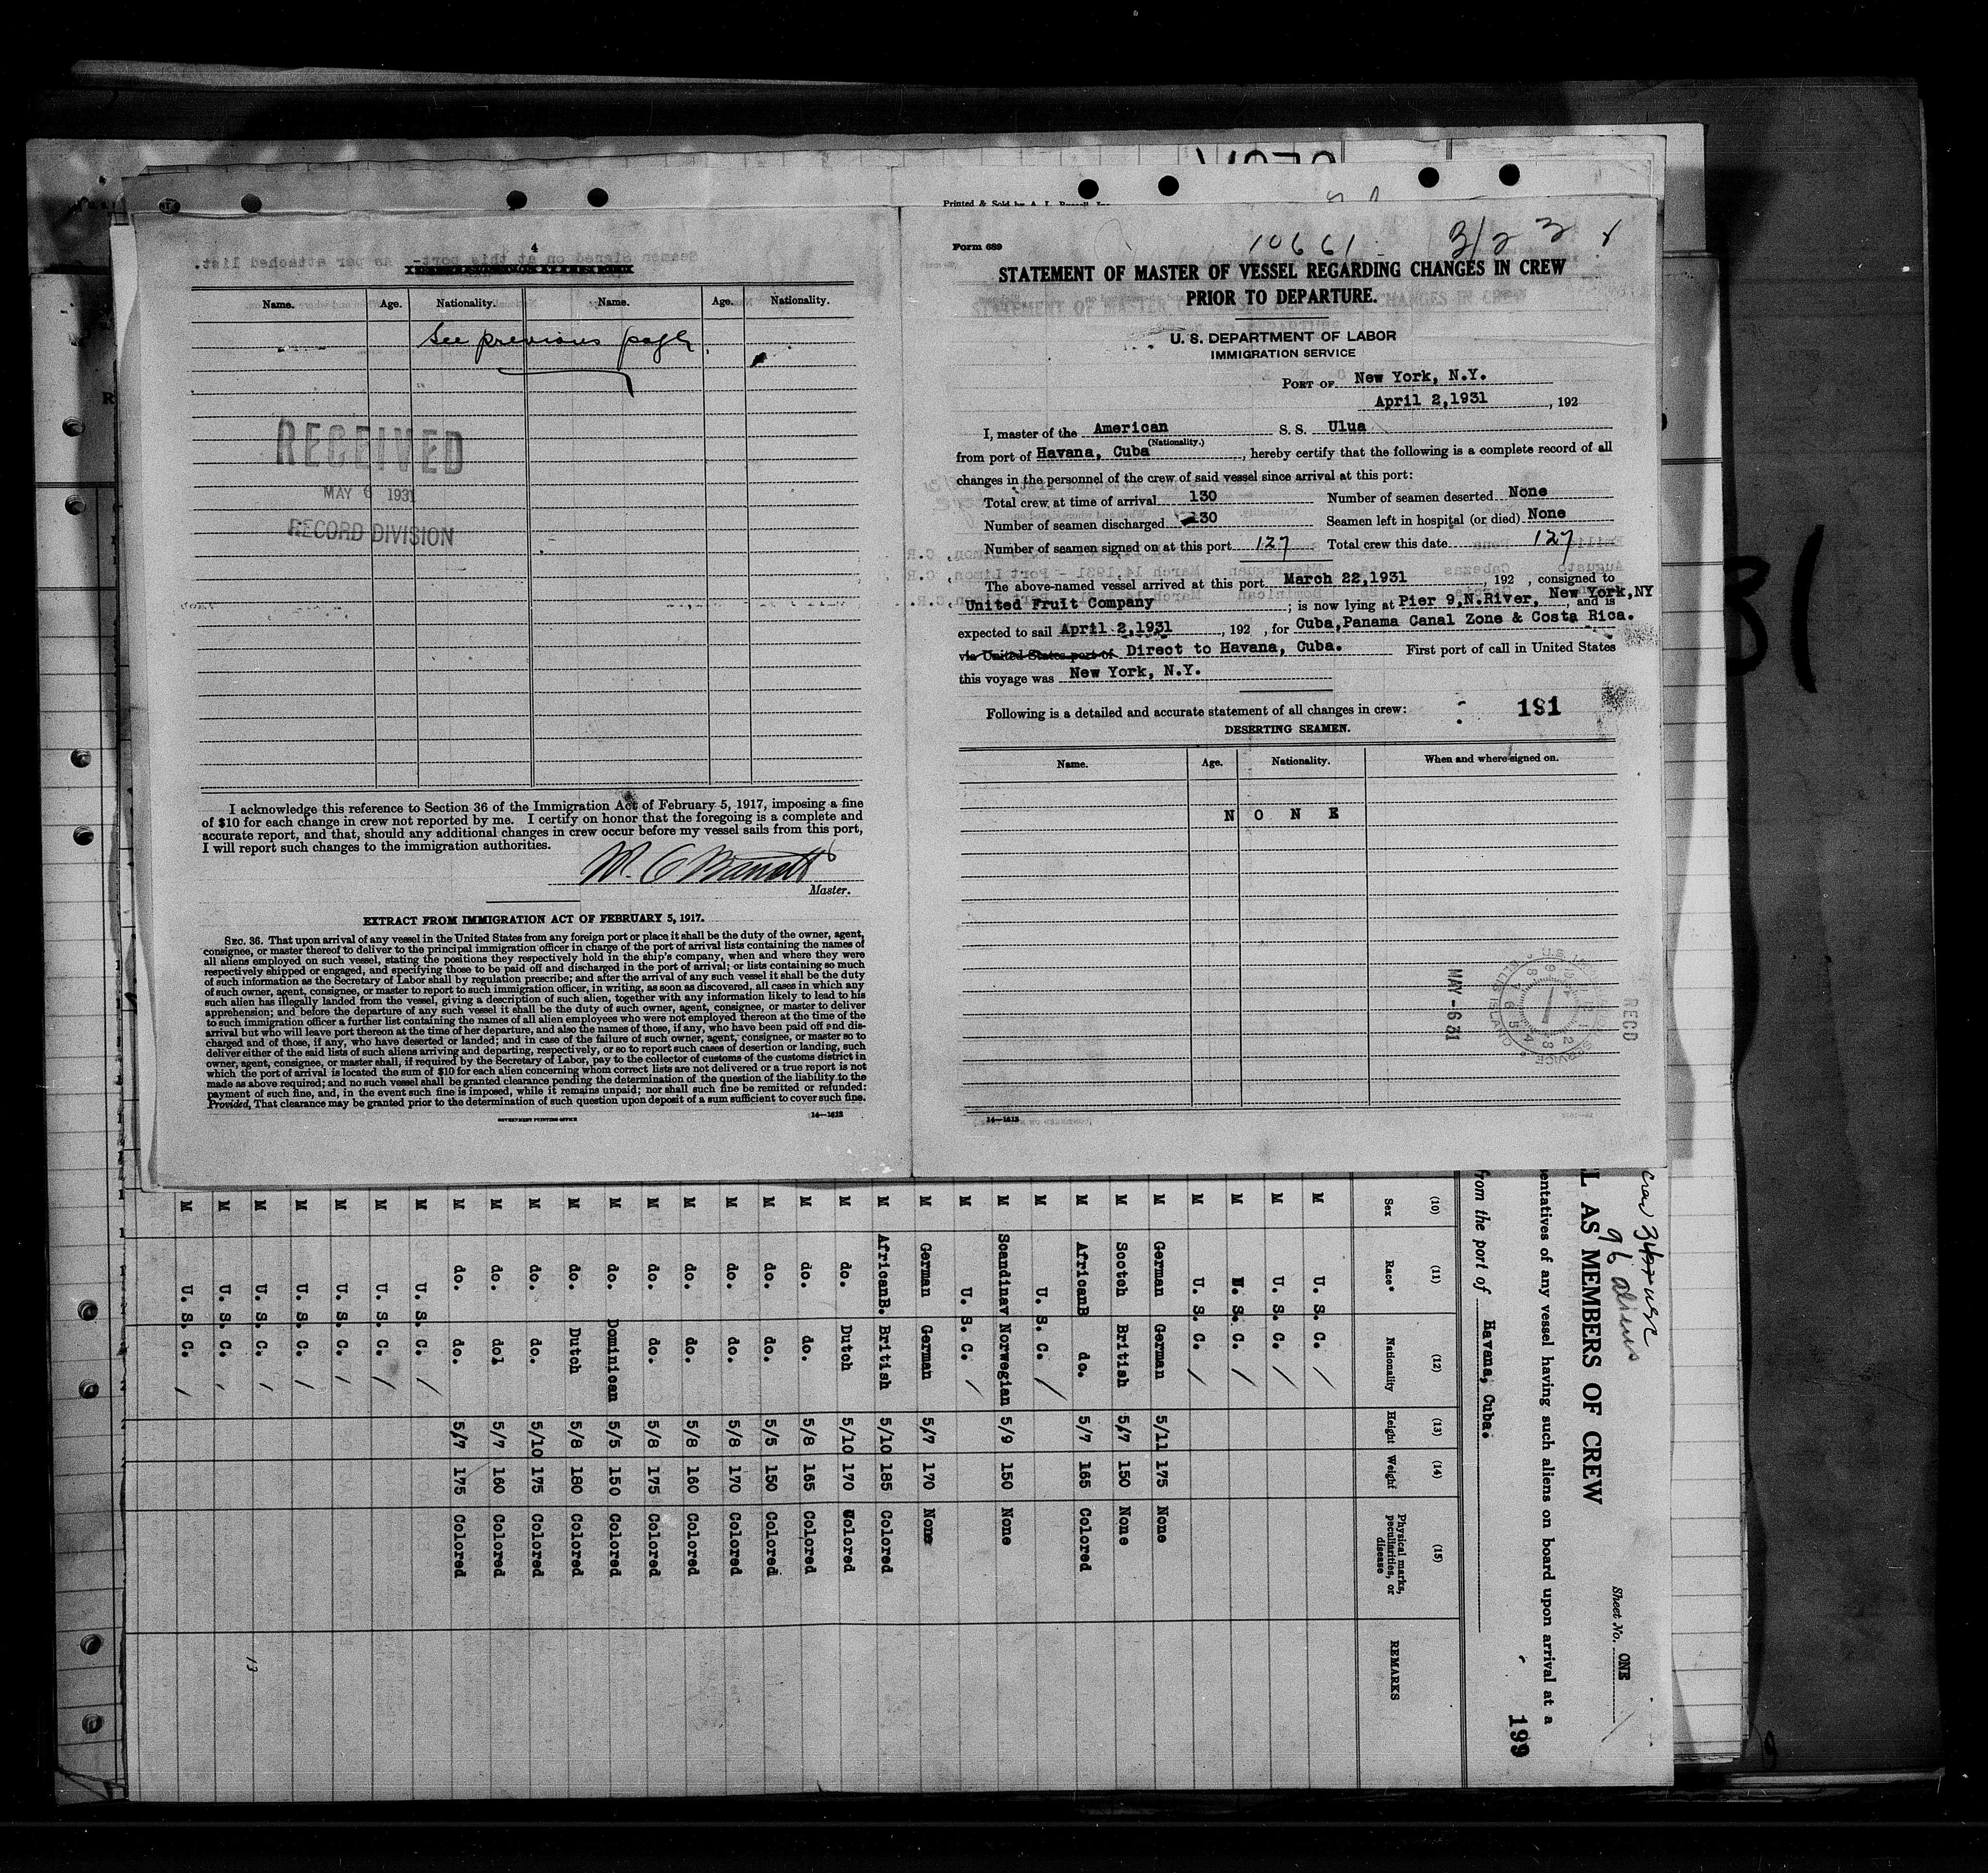 4
Name. Age. Nationality. Name. Age. Nationality.
See previous page
RECEIVED
MAY 6 1931
RECORD DIVISION
I acknowledge this reference to Section 36 of the Immigration Act of February 5, 1917, imposing a fine
of $10 for each change in crew not reported by me. I certify on honor that the foregoing is a complete and
accurate report, and that, should any additional changes in crew occur before my vessel sails from this port,
I will report such changes to the immigration authorities.
Master.
EXTRACT FROM IMMIGRATION ACT OF FEBRUARY 5, 1917.
SEC. 36. That upon arrival of any vessel in the United States from any foreign port or place it shall be the duty of the owner, agent,
consignee, or master thereof to deliver to the principal immigration officer in charge of the port of arrival lists containing the names of
all aliens employed on such vessel, stating the positions they respectively hold in the ship's company, when and where they were
respectively shipped or engaged, and specifying those to be paid off and discharged in the port of arrival; or lists containing so much
of such information as the Secretary of Labor shall by regulation prescribe; and after the arrival of any such vessel it shall be the duty
of such owner, agent, consignee, or master to report to such immigration officer, in writing, as soon as discovered, all cases in which any
such alien has illegally landed from the vessel, giving a description of such alien, together with any information likely to lead to his
apprehension; and before the departure of any such vessel it shall be the duty of such owner, agent, consignee, or master to deliver
to such immigration officer a further list containing the names of all alien employees who were not employed thereon at the time of the
arrival but who will leave port thereon at the time of her departure, and also the names of those, if any, who have been paid off and dis-
charged and of those, if any, who have deserted or landed; and in case of the failure of such owner, agent, consignee, or master so to
deliver either of the said lists of such aliens arriving and departing, respectively, or so to report such cases of desertion or landing, such
owner, agent, consignee, or master shall, if required by the Secretary of Labor, pay to the collector of customs of the customs district in
which the port of arrival is located the sum of $10 for each alien concerning whom correct lists are not delivered or a true report is not
made as above required; and no such vessel shall be granted clearance pending the determination of the question of the liability to the
payment of such fine, and, in the event such fine is imposed, while it remains unpaid; nor shall such fine be remitted or refunded:
Provided, That clearance may be granted prior to the determination of such question upon deposit of a sum sufficient to cover such fine.
GOVERNMENT PRINTING OFFICE 14—1613
Printed & Sold by A. L. Russell, Inc.
Form 689
10661
STATEMENT OF MASTER OF VESSEL REGARDING CHANGES IN CREW
PRIOR TO DEPARTURE.
U. S. DEPARTMENT OF LABOR
IMMIGRATION SERVICE
PORT OF New York, N.Y.
April 2,1931, 192
I, master of the American S. S. Ulua
(Nationality.)
from port of Havana, Cuba, hereby certify that the following is a complete record of all
changes in the personnel of the crew of said vessel since arrival at this port:
Total crew at time of arrival 130 Number of seamen deserted None
Number of seamen discharged 130 Seamen left in hospital (or died) None
Number of seamen signed on at this port 127 Total crew this date 127
The above-named vessel arrived at this port March 22,1931, 192 , consigned to
United Fruit Company; is now lying at Pier 9,N.River, New York,NY, and is
expected to sail April 2,1931, 192 , for Cuba,Panama Canal Zone & Costa Rica.
via United States port of Direct to Havana, Cuba. First port of call in United States
this voyage was New York, N.Y.
Following is a detailed and accurate statement of all changes in crew:
191
DESERTING SEAMEN.
Name. Age. Nationality. When and where signed on.
N O N E
MAY -6 31
RECD
14—1613
L AS MEMBERS OF CREW
96 aliens
Sheet No. ONE
entatives of any vessel having such aliens on board upon arrival at a
from the port of Havana, Cuba.
199
(10) (11) (12) (13) (14) (15)
Sex Race* Nationality Height Weight Physical marks, peculiarities, or disease REMARKS
M U. S. C. /
M U. S. C. /
M U. S. C. /
M U. S. C. /
M German German 5/11 175 None
M Scotch British 5/7 150 None
M AfricanB do. 5/7 165 Colored
M U. S. C. /
M Scandinav Norwegian 5/9 150 None
M U. S. C. /
M German German 5/7 170 None
M AfricanB. British 5/10 185 Colored
M do. Dutch 5/10 170 Colored
M do. do. 5/8 165 Colored
M do. do. 5/5 150 Colored
M do. do. 5/8 170 Colored
M do. do. 5/8 160 Colored
M do. do. 5/8 175 Colored
M do. Dominican 5/5 150 Colored
M do. Dutch 5/8 180 Colored
M do. do. 5/10 175 Colored
M do. dol 5/7 160 Colored
M do. do. 5/7 175 Colored
M U. S. C. /
M U. S. C. /
M U. S. C. /
M U. S. C. /
M U. S. C. /
M U. S. C. /
M U. S. C. /
13